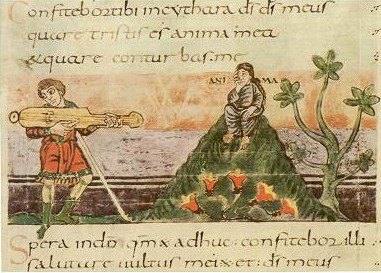 Confitebortibi incythara d̄s d̄s meus
quare tristis es anima mea
&quare conturbas me
ANI MA
Spera indō qm̄ adhuc confitebor illi
salutare uultus mei et d̄s meus